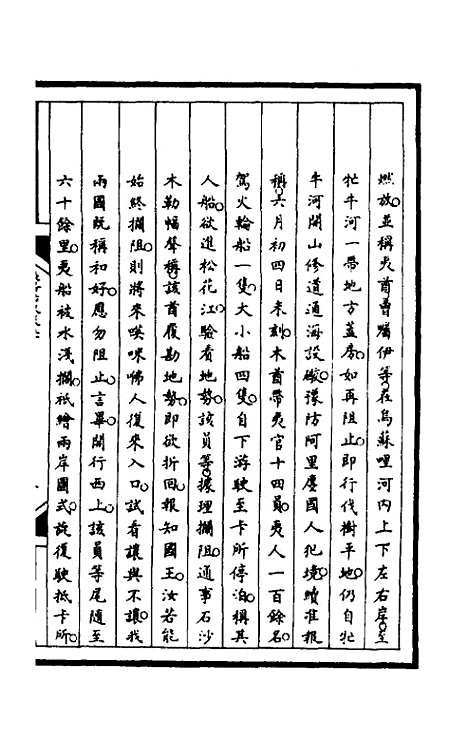 燃放並稱夷酋曾囑伊等在烏蘇哩河内上下左右岸至
牤牛河一帶地方蓋房如再阻止即行伐樹平地仍自牤
牛河開山修道通海設礮豫防阿里慶國人犯境續准報
稱六月初四日未刻木酋帶夷官十四員夷人一百餘名
駕火輪船一隻大小船四隻自下游駛至卡所停泊稱其
人船欲進松花江驗看地勢該員等據理攔阻通事石沙
木勒幅聲稱該酋履勘地勢即欲折回報知國王汝若能
始終攔阻則將來𠸄咪咈人復來入口試看讓與不讓我
兩國既稱和好應勿阻止言畢開行西上該員等尾隨至
六十餘里夷船被水淺攔祇繪兩岸圖式旋復駛抵卡所